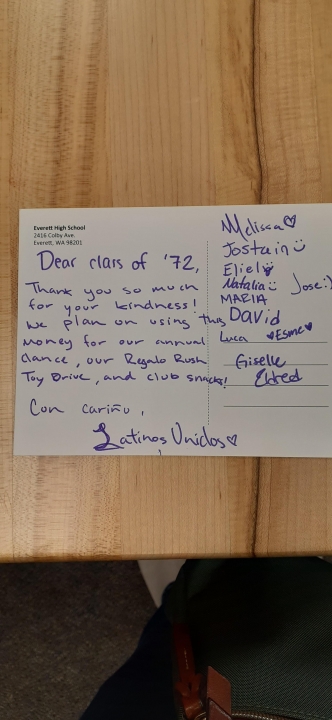 Everett High School
2416 Colby Ave.
Everett, WA 98201
Dear class of '72,
Thank you so much
for your kindness!
We plan on using this
money for our annual
dance, our Regalo Rush
Toy Drive, and club snacks!
Con cariño,
Latinos Unidos♡
Melissa♡
Jostain
Eliel
Natalia
Jose:)
MARIA
David
Luca
♥Esme♥
Giselle
Eldred